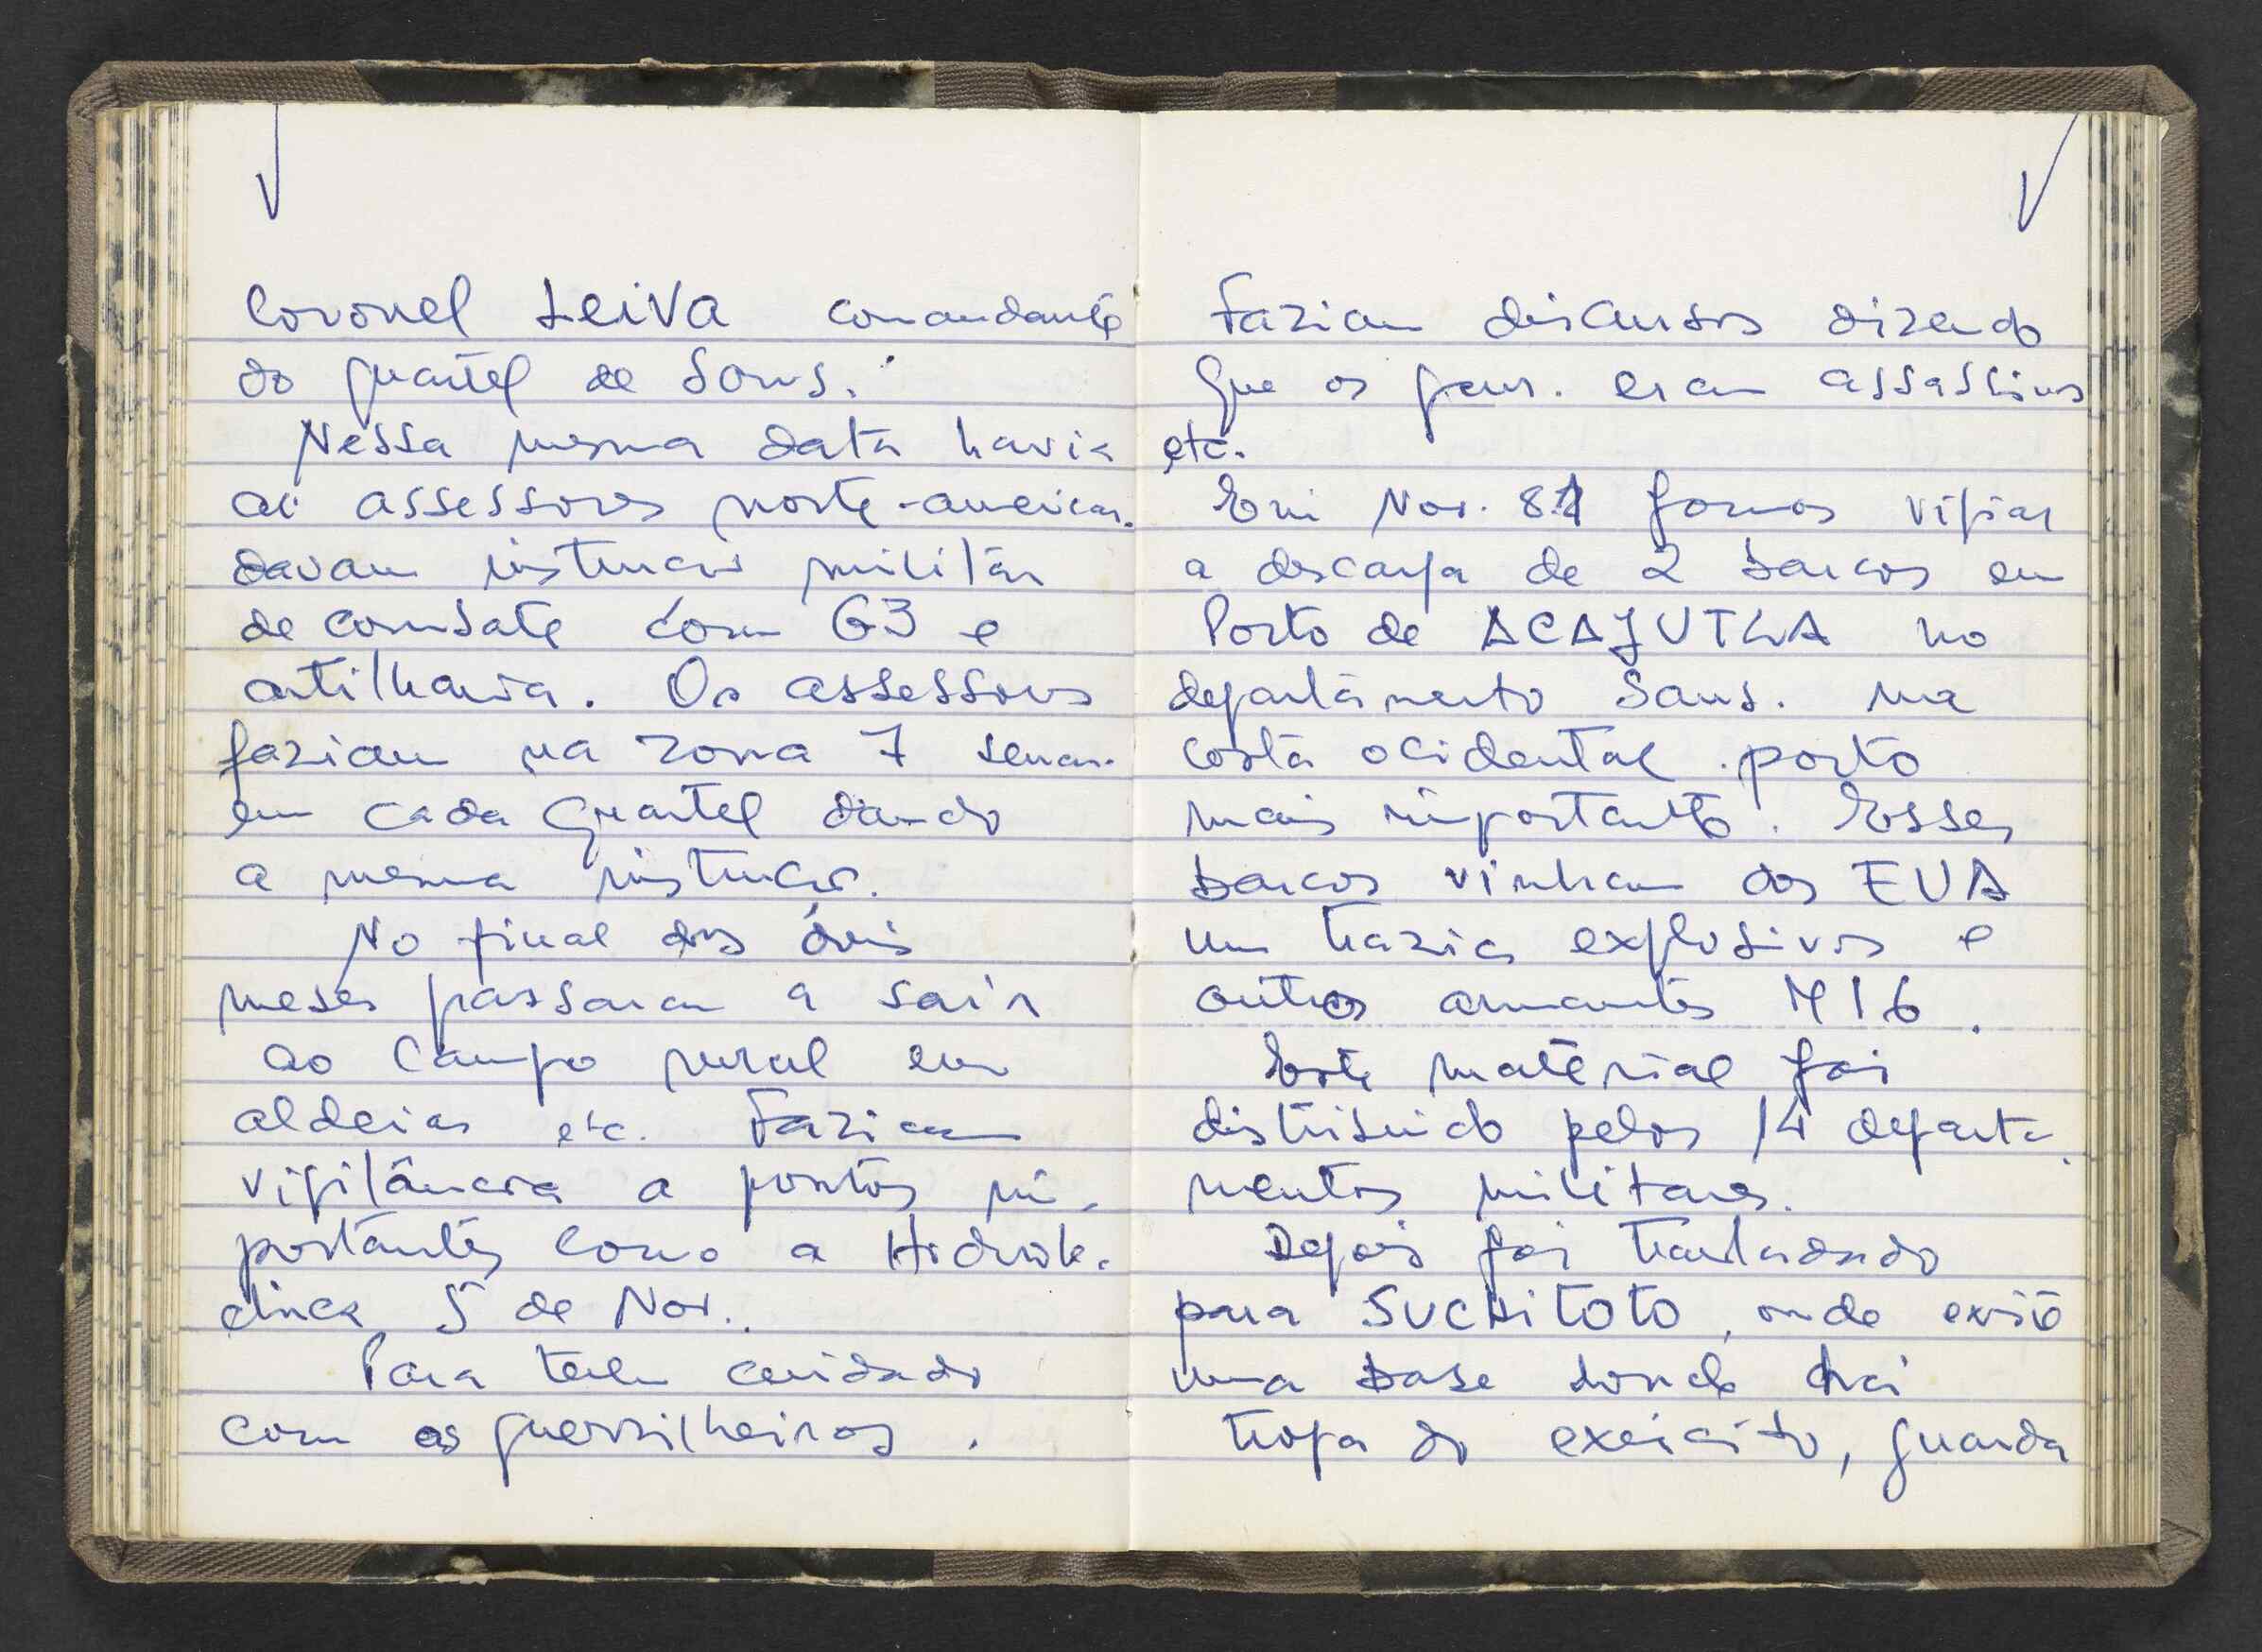 Coronel LEIVA comandante
do quartel de Sons.
Nessa mesma data havia
aí assessores norte-american.
davam instrução militar
de combate com G3 e
artilharia. Os assessores
faziam na zona 7 seman.
em cada quartel dando
a mesma instrução.
No final dos dois
meses passaram a sair
ao campo rural em
aldeias etc. Faziam
vigilância a pontos im-
portantes como a Hidroele-
ctrica 5 de Nov..
Para terem cuidado
com os guerrilheiros.
Faziam discursos dizendo
que os guer. eram assassinos
etc.
Em Nov. 81 fomos vigiar
a descarga de 2 barcos em
Porto de ACAJUTLA no
departamento Sons. na
costa ocidental. porto
mais importante. Esses
barcos vinham dos EUA
um trazia explosivos e
outros armamentos M16.
Este material foi
distribuido pelos 14 departa-
mentos militares.
Depois foi transladado
para SUCHITOTO, onde existe
uma base donde hai
tropa do exercito, guarda